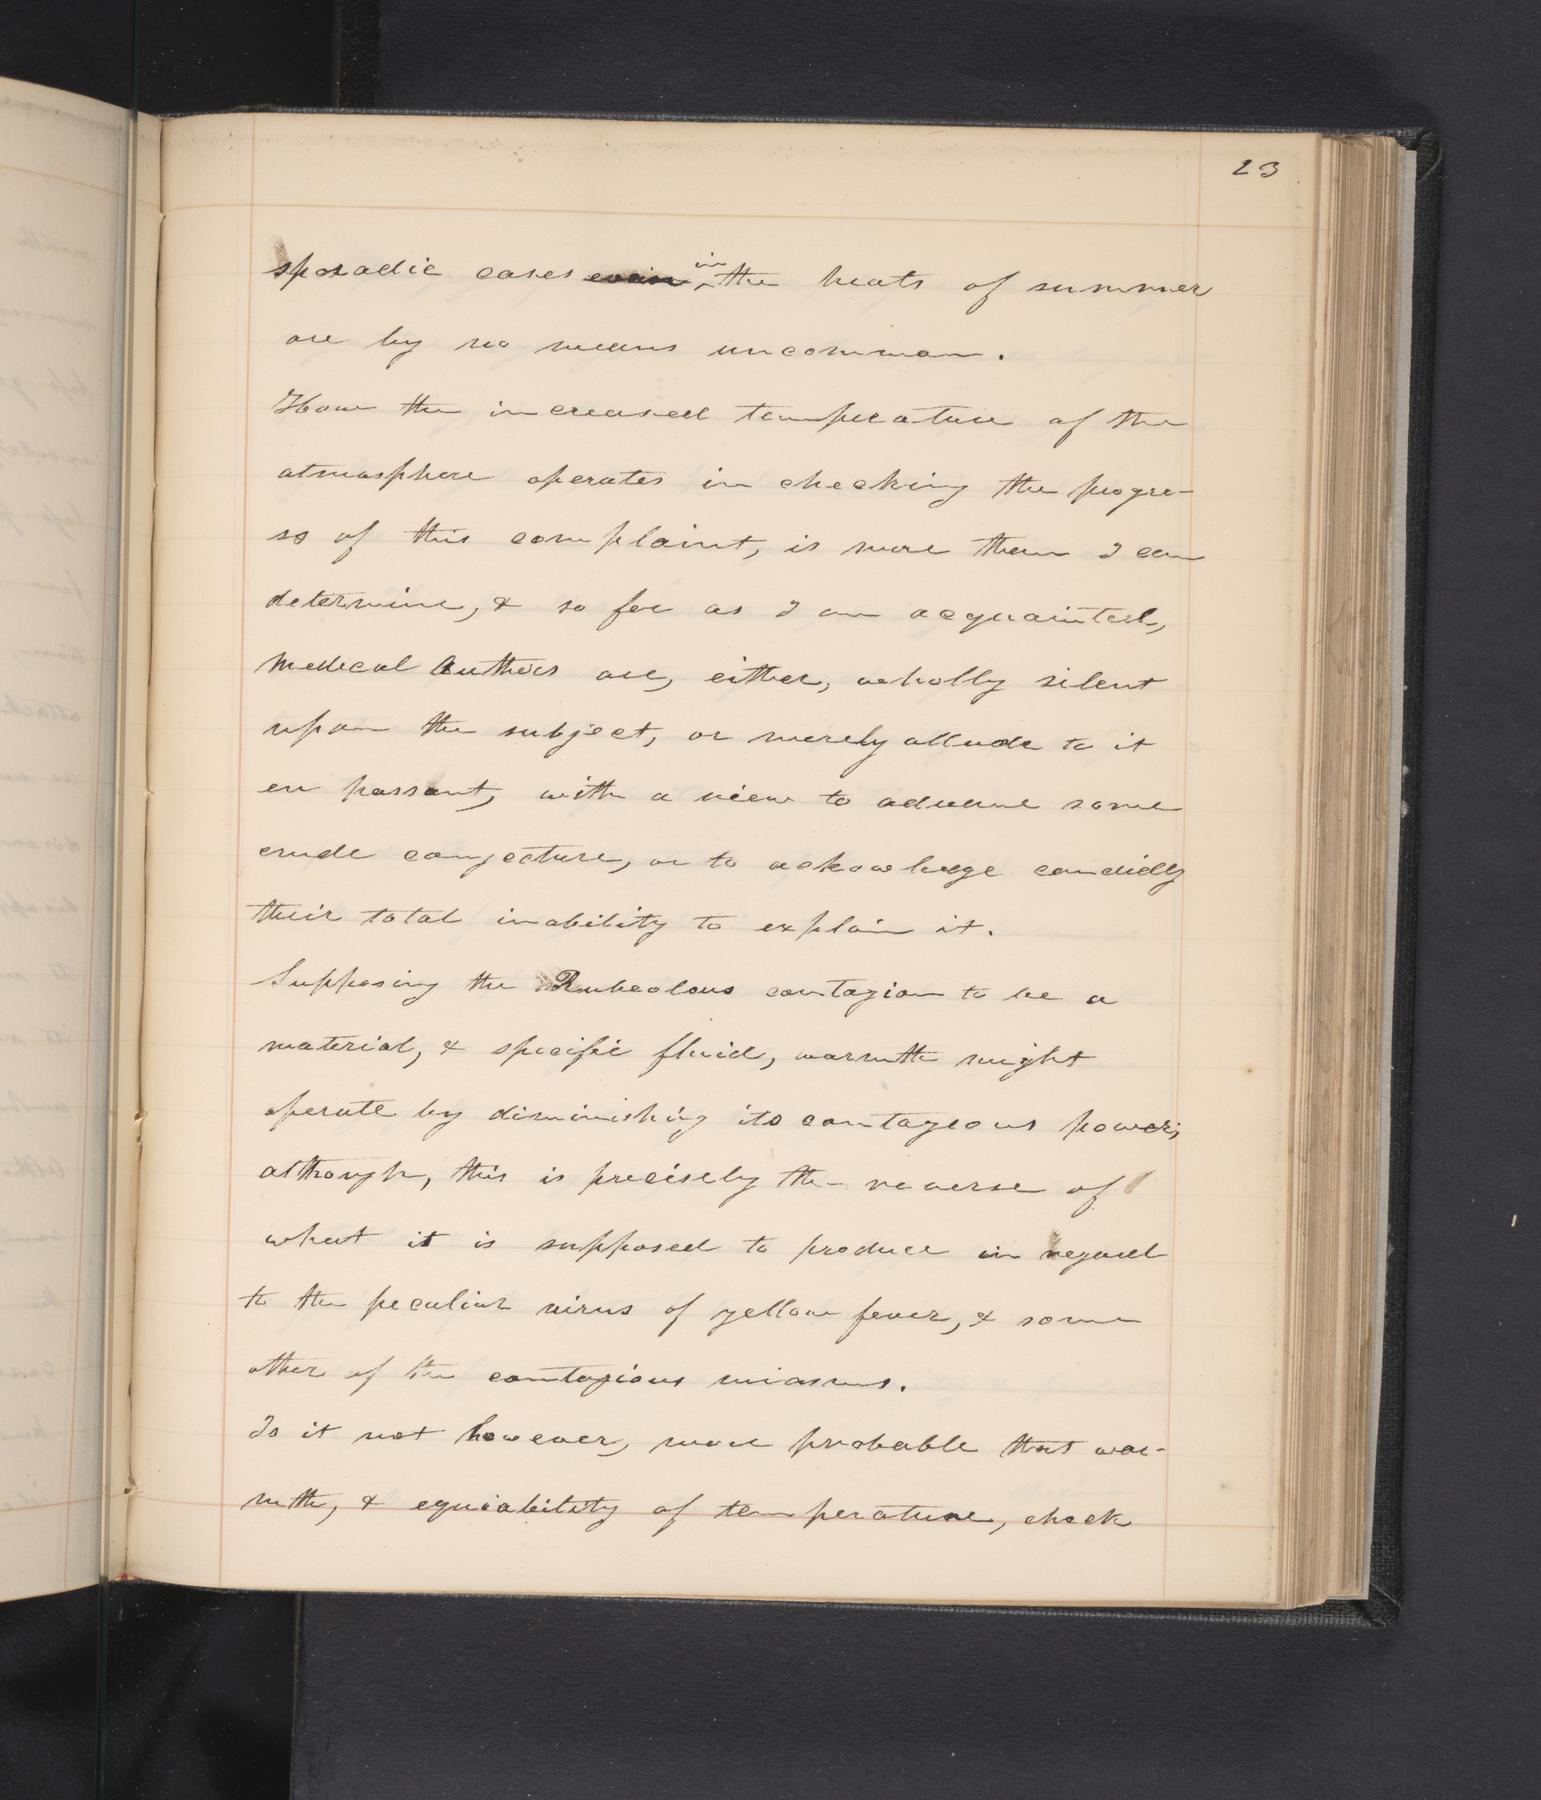 23
sporadic cases even in the heats of summer
are by no means uncommon.
How the increased temperature of the
atmosphere operates in checking the progre-
ss of this complaint, is more than I can
determine, & so far as I am acquainted,
medical Authors are, either, wholly silent
upon the subject, or merely allude to it
en passant, with a view to advance some
crude conjecture, or to acknowledge candidly
their total inability to explain it.
Supposing the Rubeolous contagion to be a
material, & specific fluid, warmth might
operate by diminishing its contageous powers,
although, this is precisely the reverse of
what it is supposed to produce in regard
to the peculiar virus of yellow fever, & some
other of the contagious miasms.
Is it not however, more probable that war-
mth, & equiability of temperature, check